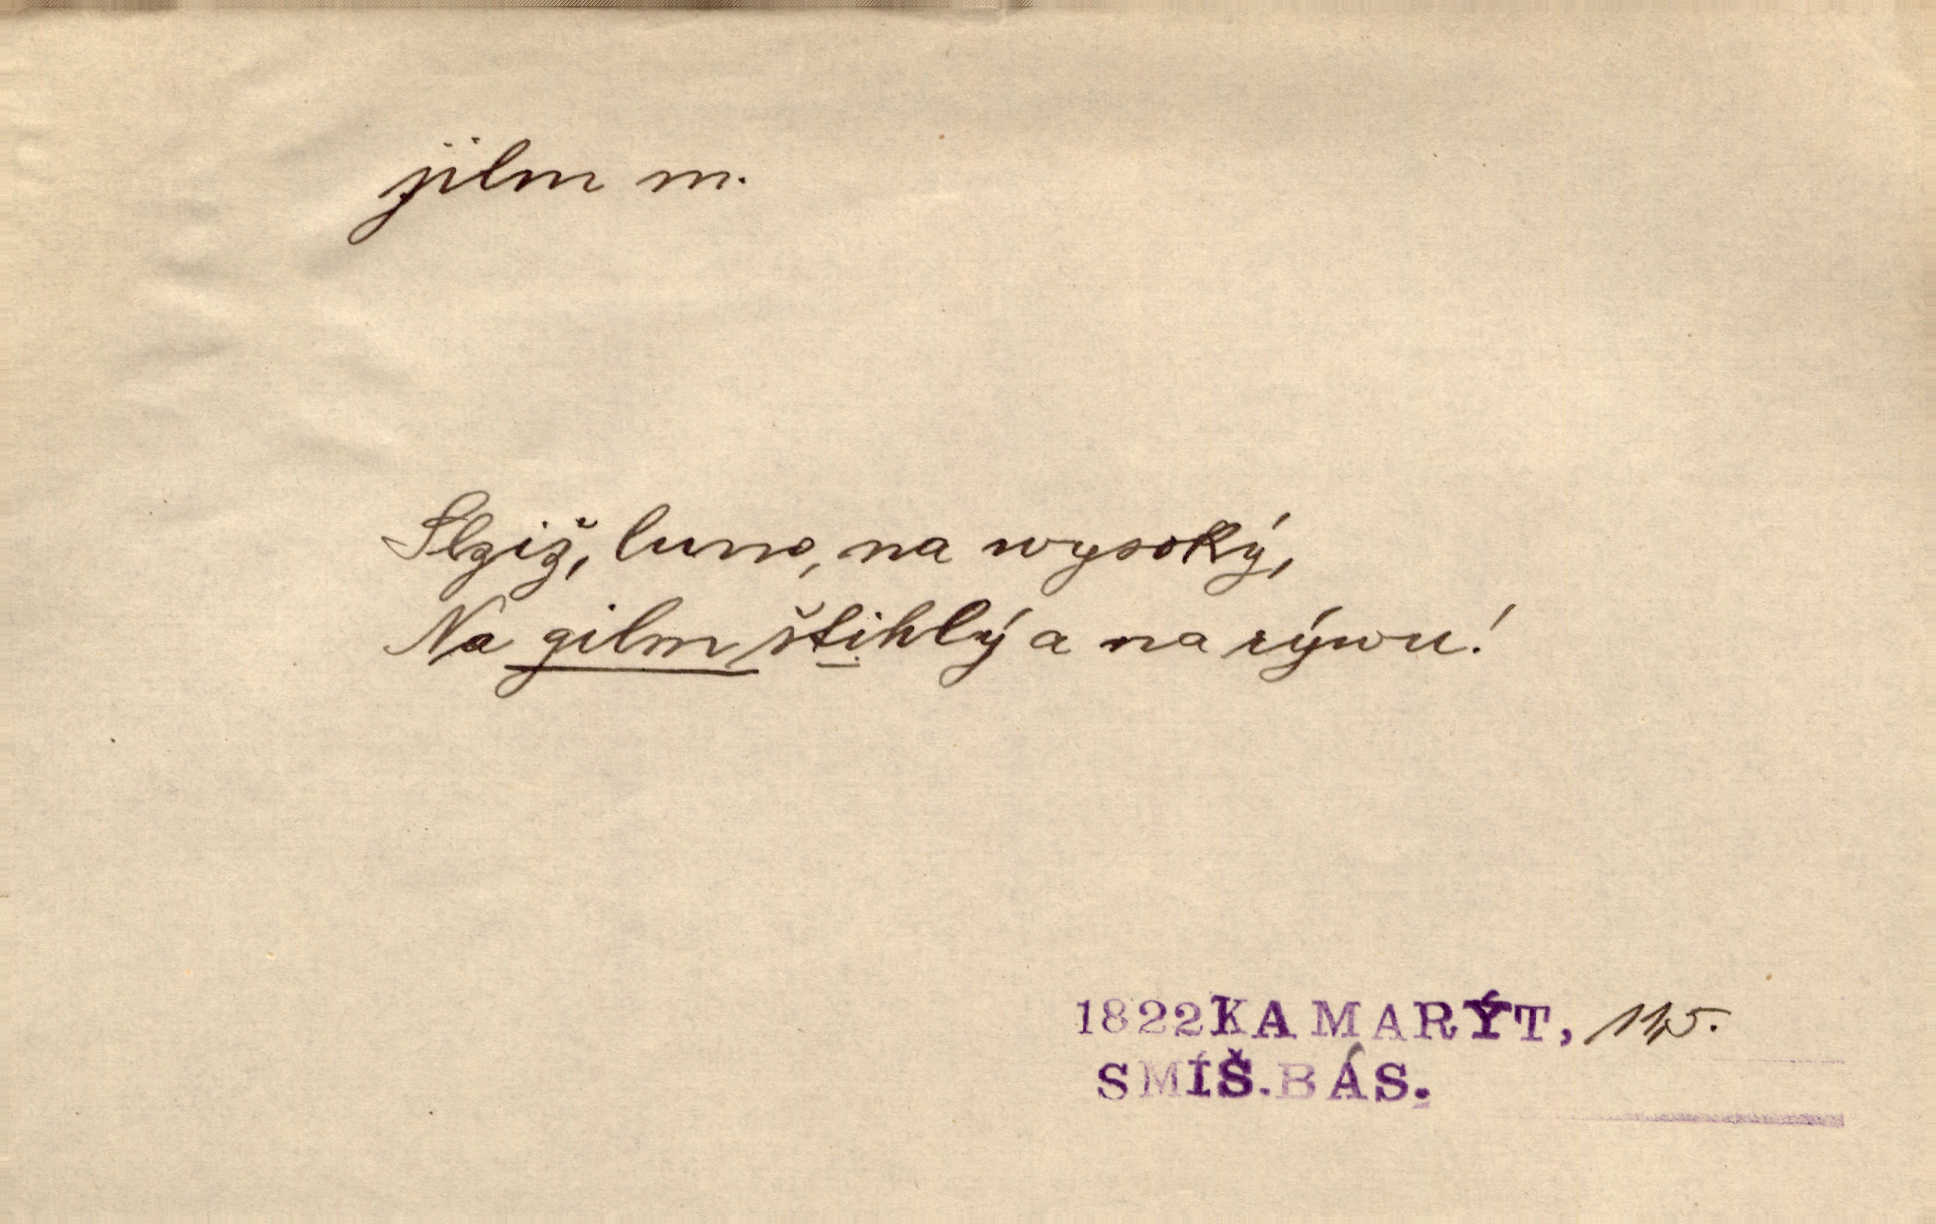 jilm m.
Slziž, luno, na wysoký,
Na gilm štihlý a na rýwu!
1822 KAMARÝT, 115.
SMÍŠ. BÁS.